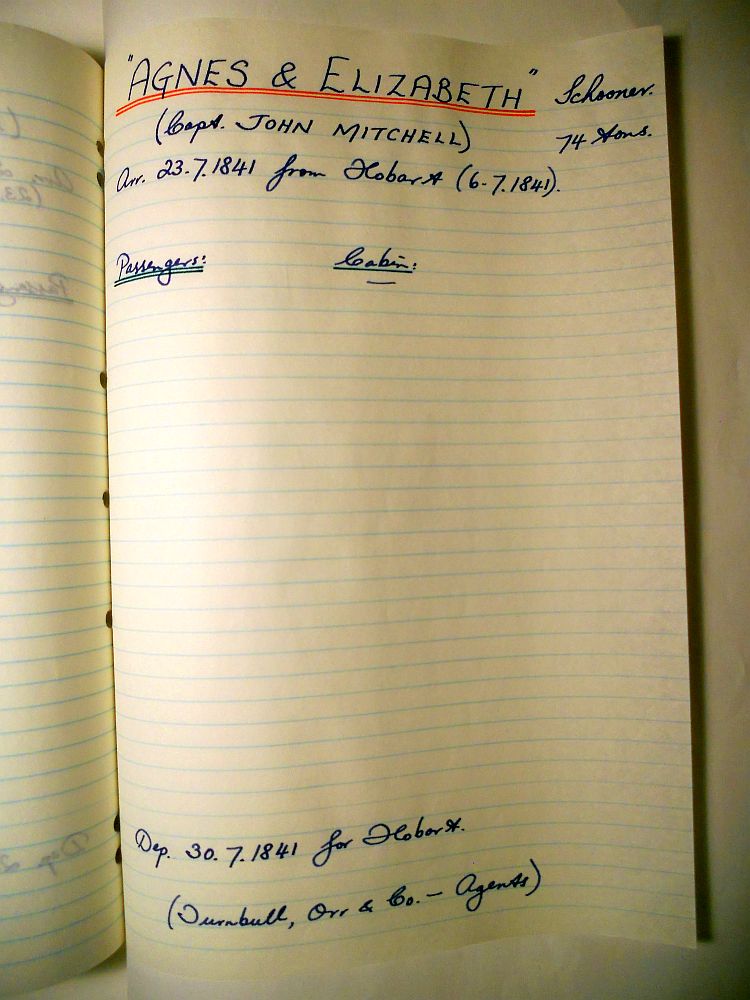 "AGNES & ELIZABETH" Schooner.
(Capt. JOHN MITCHELL) 74 tons.
Arr. 23.7.1841 from Hobart (6.7.1841).
Passengers: Cabin:
—
Dep. 30.7.1841 for Hobart.
(Turnbull, Orr & Co. — Agents)